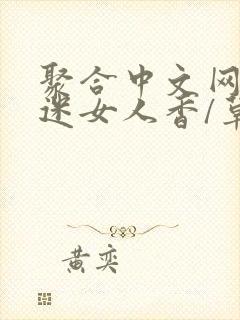 聚合中文网
迷女人香/草
黄奕